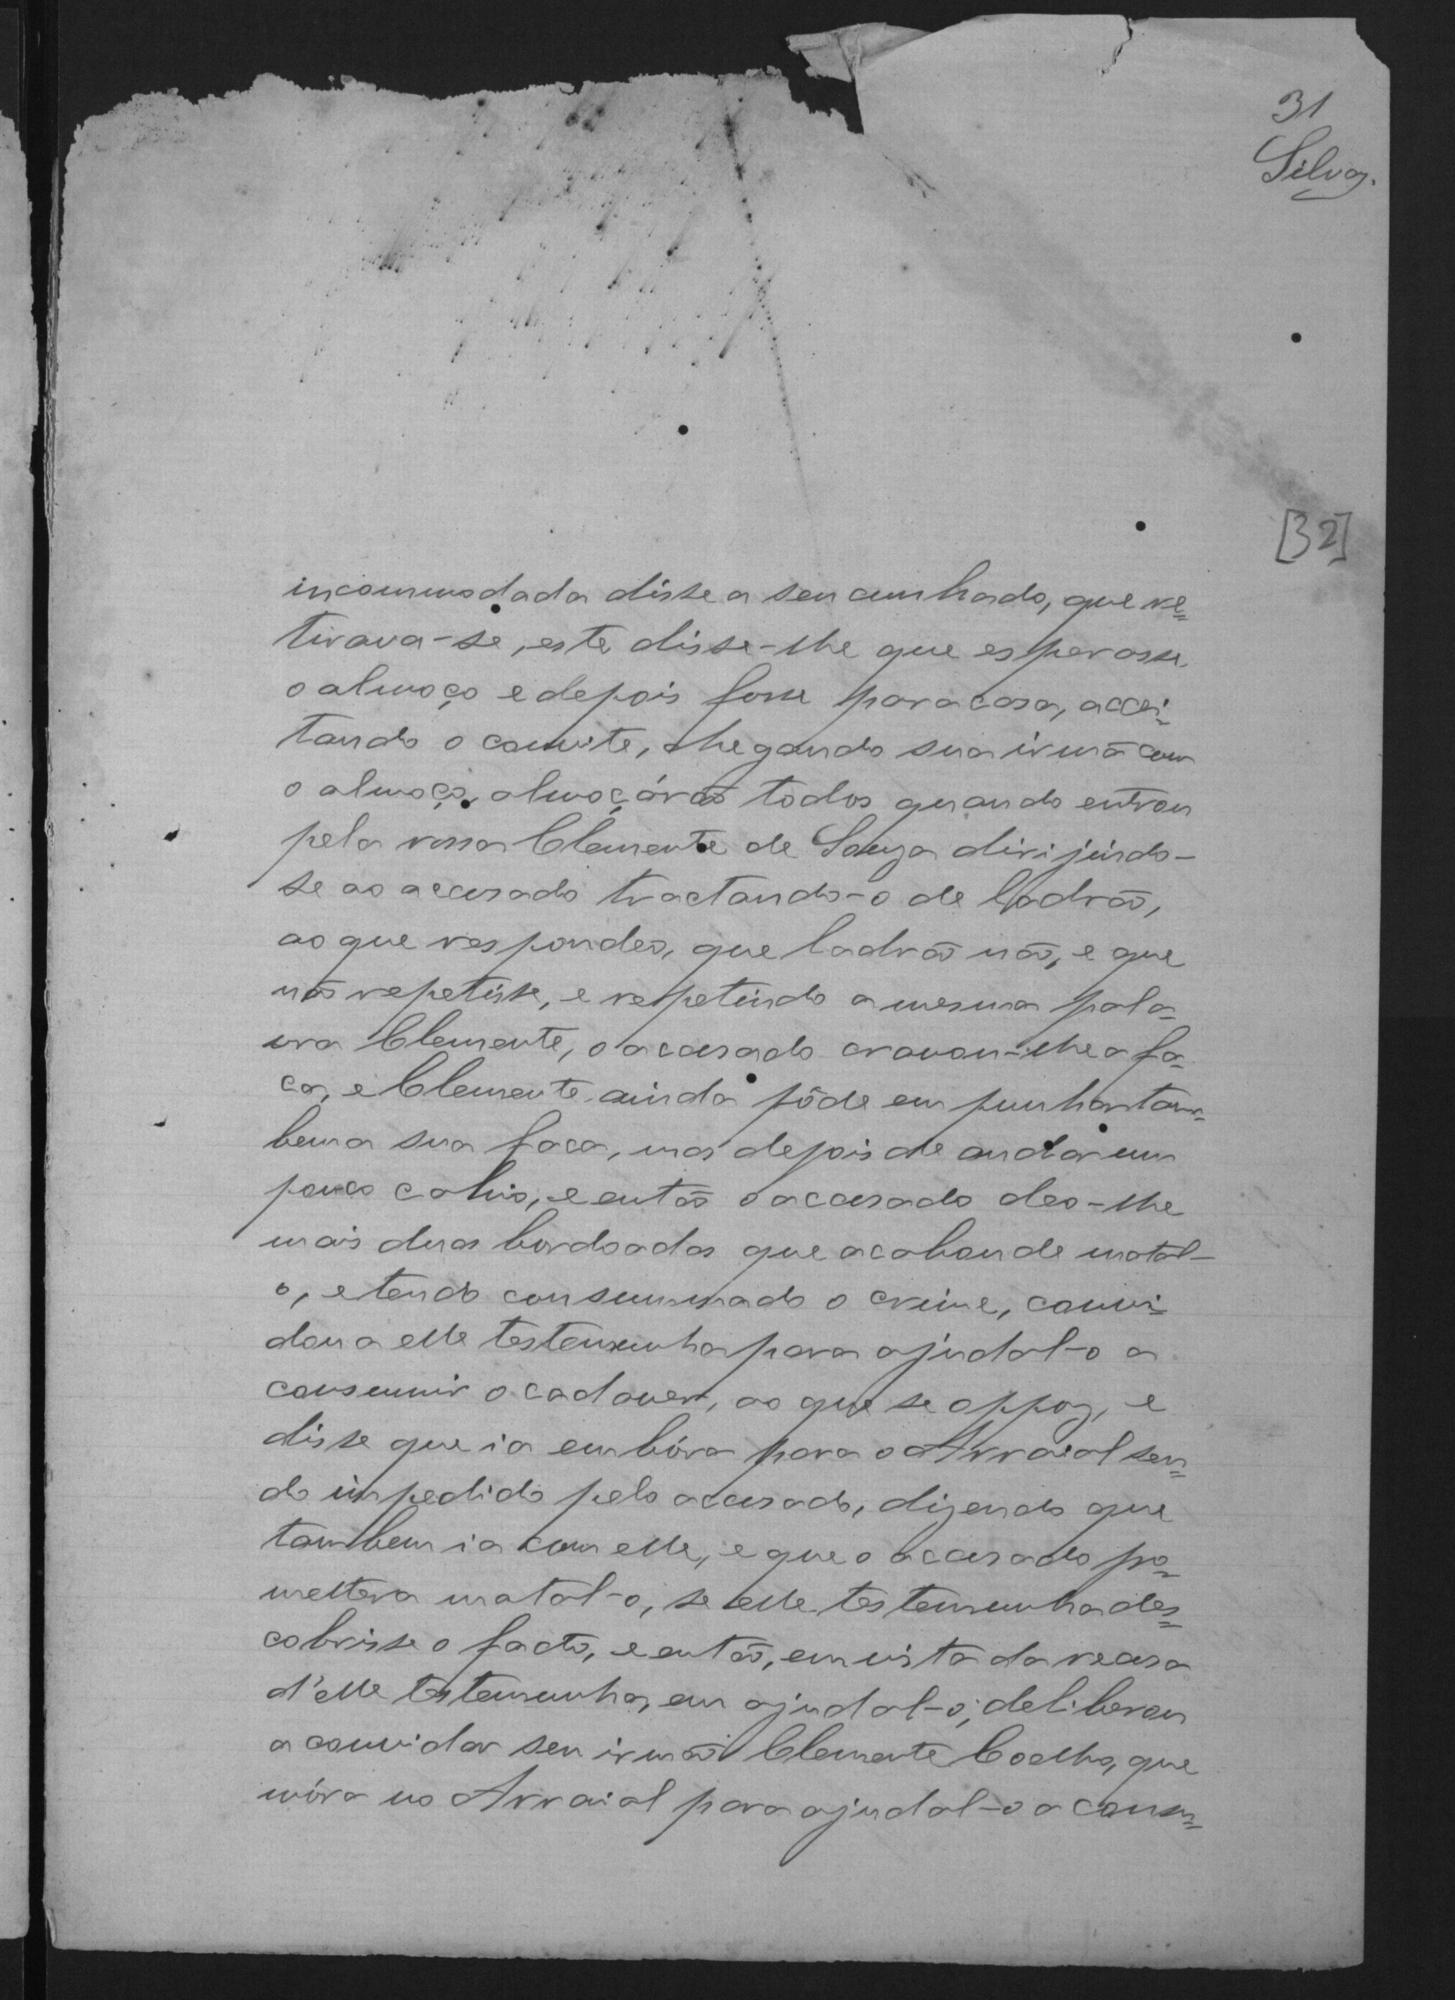 31
Silva.
[32]
incommodada disse a seu cunhado, que re=
tirava-se, este disse-lhe que esperasse
o almoço e depois fosse para casa, accei=
tando o convite, chegando sua irmã com
o almoço, almoçárão todos quando entrou
pela rossa Clemente de Souza dirijindo-
se ao accusado tractando-o de ladrão,
ao que respondeo, que ladrão não, e que
não repetisse, e repetindo a mesma pala=
vra Clemente, o accusado cravou-lhe a fa=
ca, e Clemente ainda pôde empunhar tam=
bem a sua faca, mas depois de andar um
pouco cahio, e então o accusado deo-lhe
mais duas bordoadas que acabou de matal-
o, e tendo consummado o crime, convi=
dou a elle testemunha para ajudal-o a
consumir o cadaver, ao que se oppoz, e
disse que ia embóra para o Arraial sen=
do impedido pelo accusado, dizendo que
tambem ia com elle, e que o accusado pro=
mettera matal-o, se elle testemunha des=
cobrisse o facto, e então, em vista da recusa
d'elle testemunha, em ajudal-o, deliberou
a convidar seu irmão Clemente Coelho, que
móra no Arraial para ajudal-o a consu=